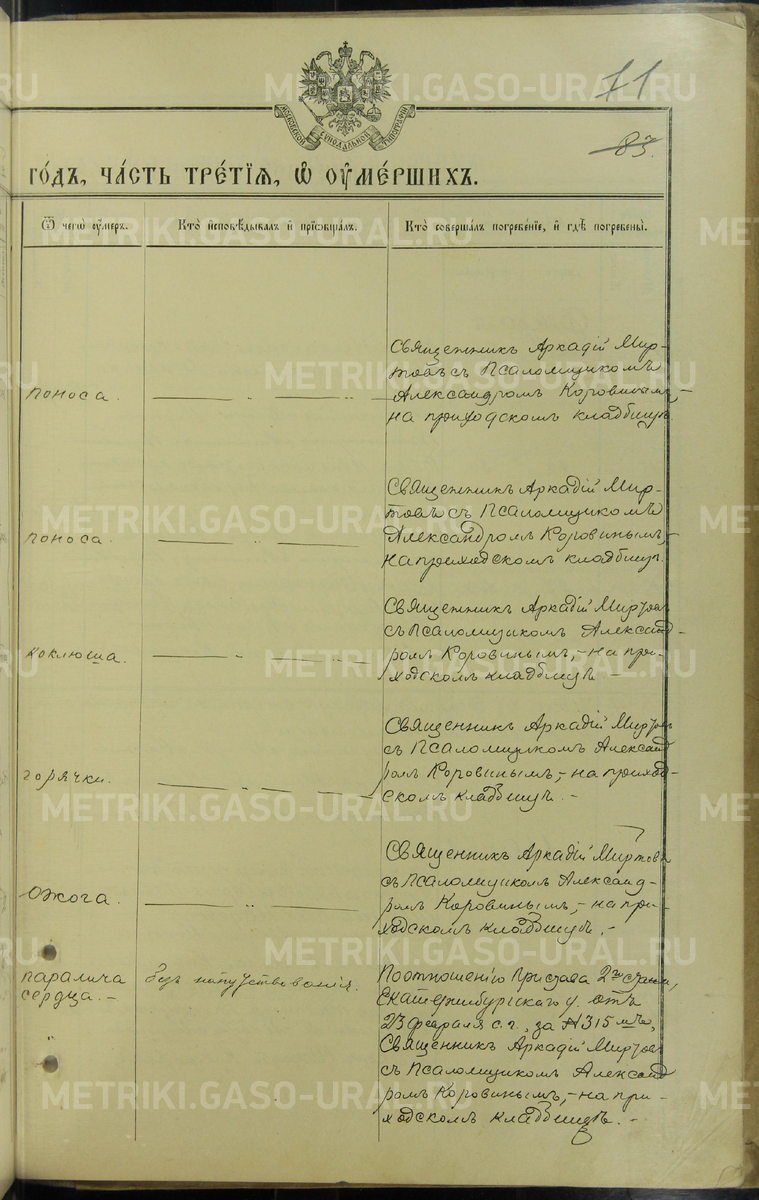 71
83.
МОСКОВСКОЙ СѴНОДАЛЬНОЙ ТИПОГРАФІИ
го́дъ, ча́сть тре́тїѧ, ѡ҆ ᲂу҆ме́ршихъ.
Ѿ чегѡ̀ ᲂу҆́меръ.
Кто̀ и҆сповѣ́дывалъ и҆ прїѡбща́лъ.
Кто̀ соверша́лъ погребе́нїе, и҆ гдѣ̀ погребены̀.
поноса.
Священникъ Аркадій Мир-
товъ съ Псаломщикомъ
Александромъ Коровинымъ,-
на приходскомъ кладбищѣ.
поноса.
Священникъ Аркадій Мир-
товъ съ Псаломщикомъ
Александромъ Коровинымъ,-
на приходскомъ кладбищѣ.
коклюша.
Священникъ Аркадій Миртовъ
съ Псаломщикомъ Александ-
ромъ Коровинымъ,- на при-
ходскомъ кладбищѣ. -
горячки.
Священникъ Аркадій Миртовъ
съ Псаломщикомъ Александ
ромъ Коровинымъ,- на приход-
скомъ кладбищѣ. -
ожога.
Священникъ Аркадій Миртовъ
съ Псаломщикомъ Александ-
ромъ Коровинымъ,- на при-
ходскомъ кладбищѣ. -
паралича
сердца. -
безъ напутствованія.
По отношенію Пристава 2го стана,
Екатеринбургскаго у. отъ
23 февраля с. г., за № 315 мъ,
Священникъ Аркадій Миртовъ
съ Псаломщикомъ Александ
ромъ Коровинымъ,- на при-
ходскомъ кладбищѣ. -
METRIKI.GASO-URAL.RU